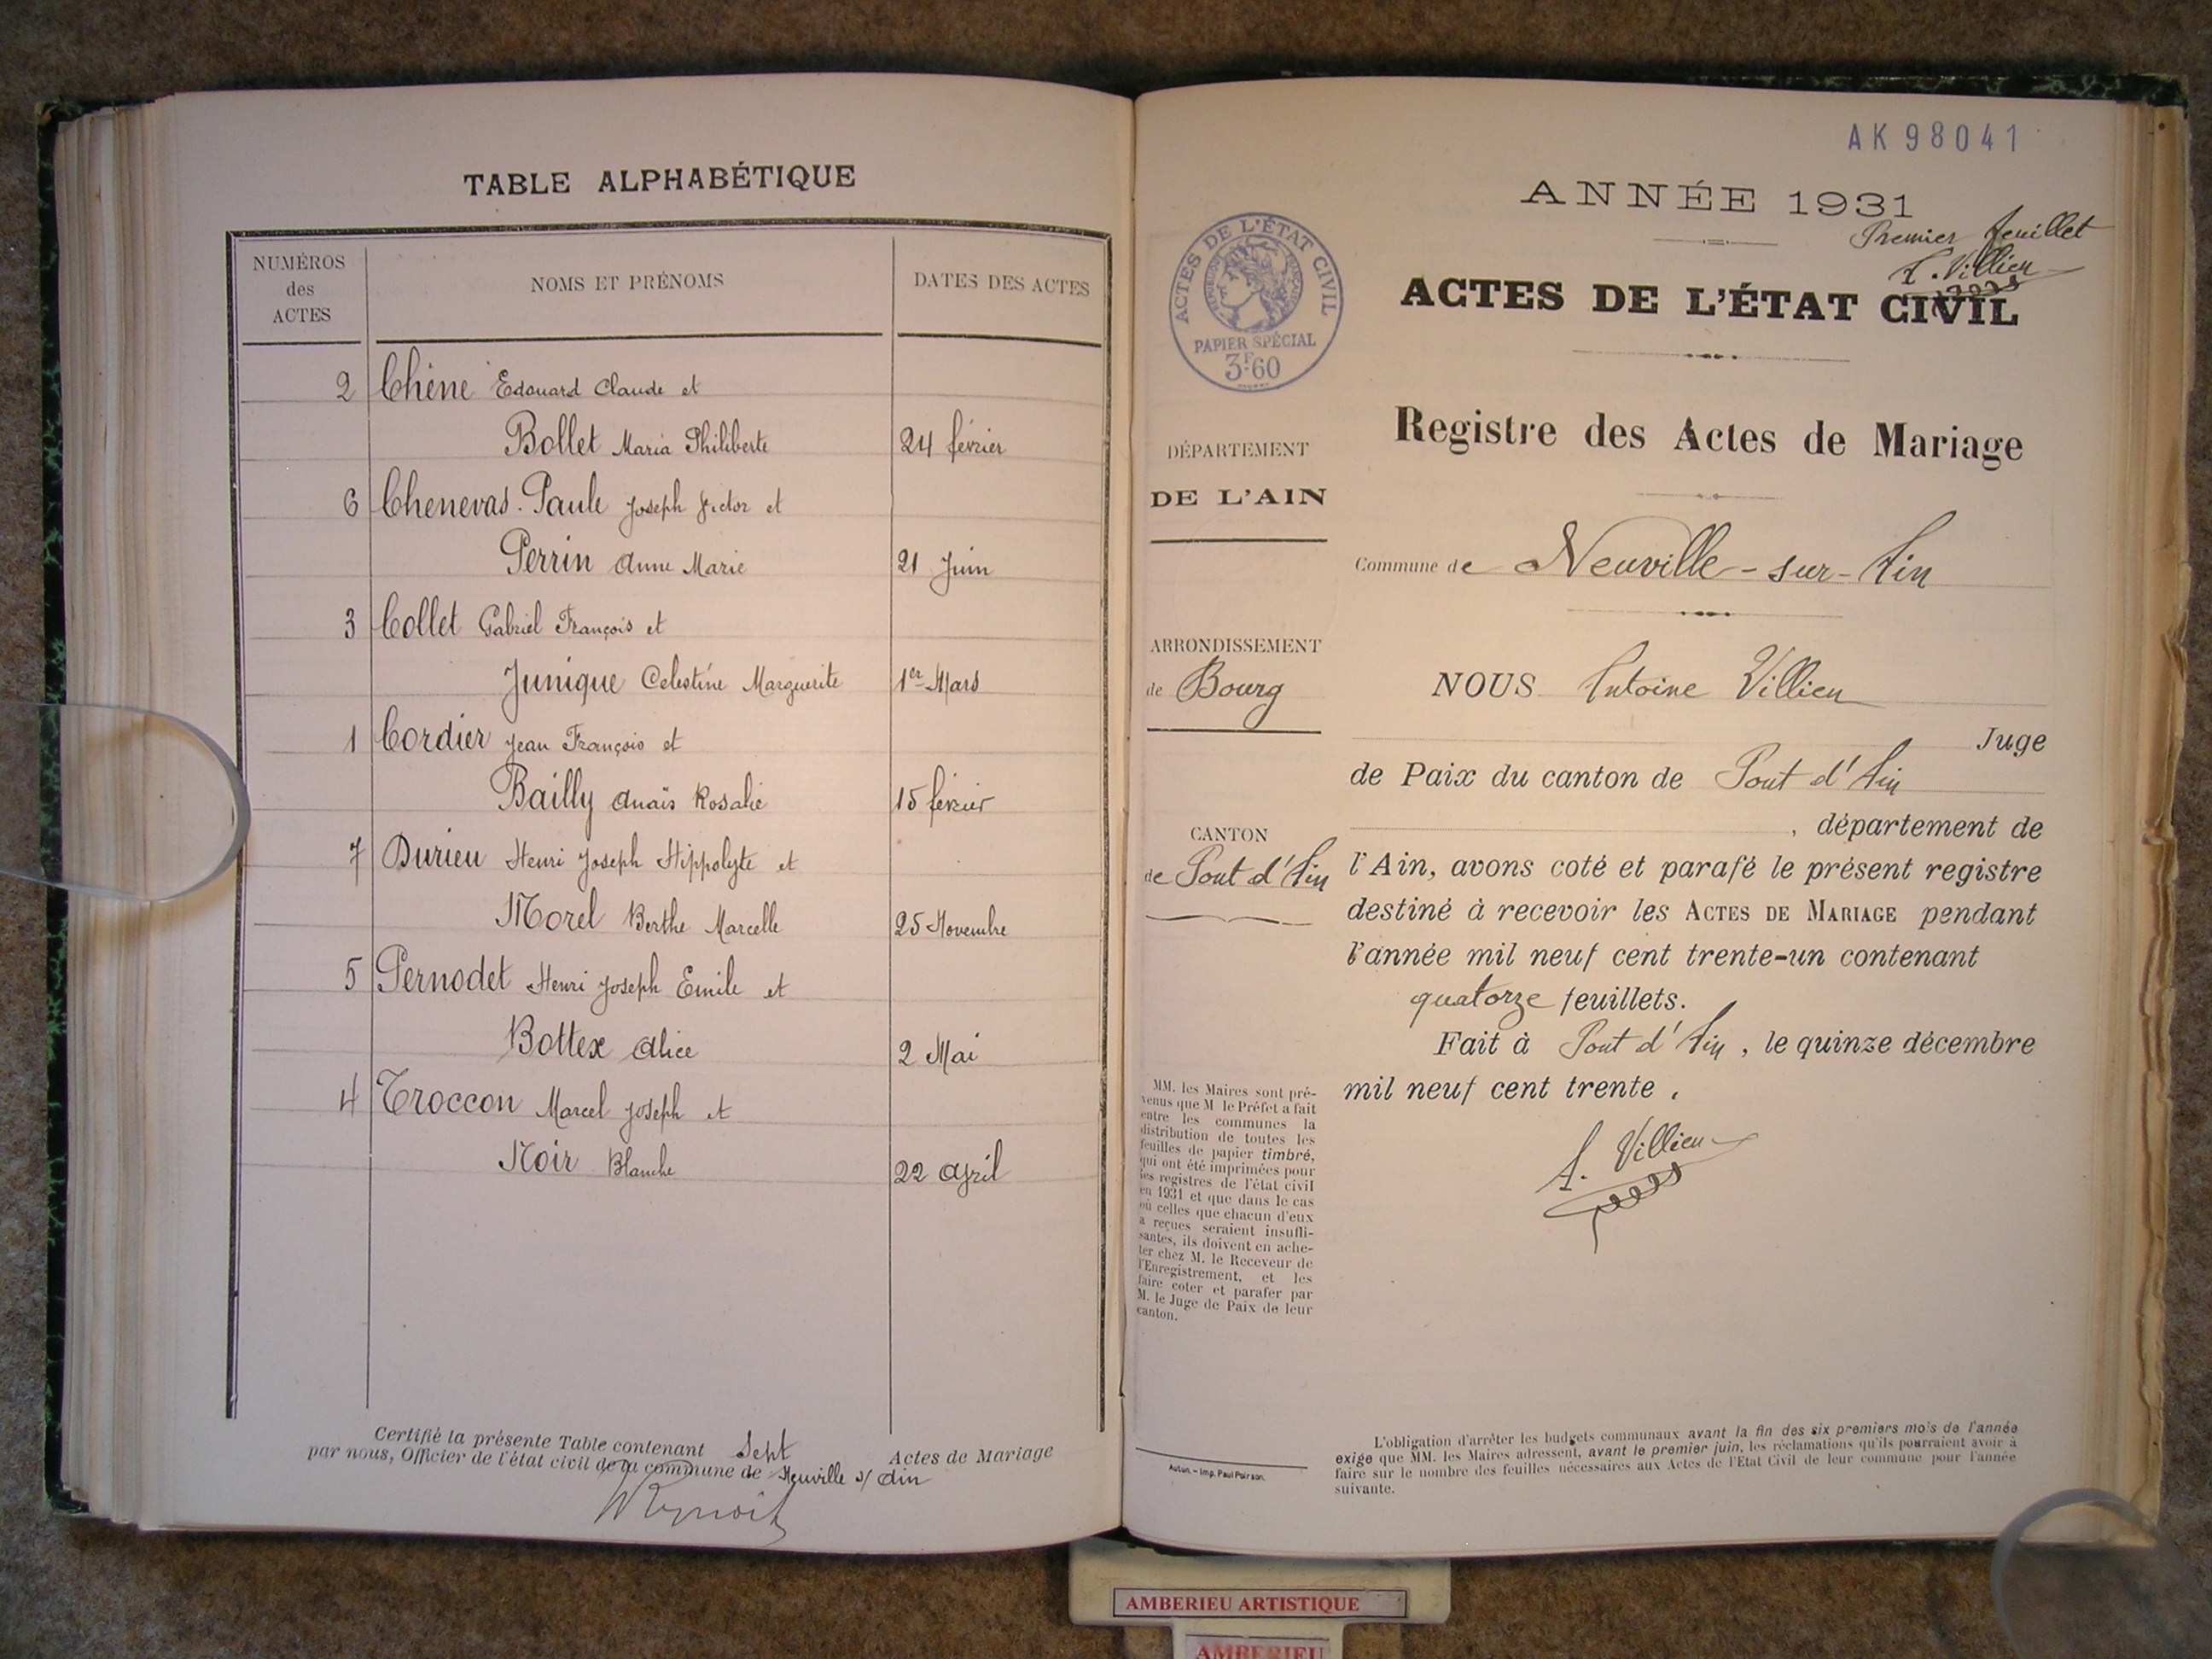 TABLE ALPHABÉTIQUE
NUMÉROS
des
ACTES
NOMS ET PRÉNOMS
DATES DES ACTES
2 Chêne Edouard Claude et
Bollet Maria Philiberte 24 février
6 Chenevas-Paule Joseph Victor et
Perrin Anne Marie 21 Juin
3 Collet Gabriel François et
Junique Celestine Marguerite 1er Mars
1 Cordier Jean François et
Bailly Anaïs Rosalie 15 février
7 Durieu Henri Joseph Hippolyte et
Morel Berthe Marcelle 25 Novembre
5 Pernodet Henri Joseph Emile et
Bottex Alice 2 Mai
4 Troccon Marcel Joseph et
Noir Blanche 22 Avril
Certifié la présente Table contenant Sept Actes de Mariage
par nous, Officier de l'état civil de la commune de Neuville s/ Ain
AK 98041
ANNÉE 1931
Premier feuillet
A. Villien
ACTES DE L'ÉTAT CIVIL
ACTES DE L'ÉTAT CIVIL
RÉPUBLIQUE FRANÇAISE
PAPIER SPÉCIAL
3F60
Registre des Actes de Mariage
DÉPARTEMENT
DE L'AIN
Commune de Neuville-sur-Ain
ARRONDISSEMENT
de Bourg
CANTON
de Pont d'Ain
NOUS Antoine Villien
Juge
de Paix du canton de Pont d'Ain
, département de
l'Ain, avons coté et parafé le présent registre
destiné à recevoir les ACTES DE MARIAGE pendant
l'année mil neuf cent trente-un contenant
quatorze feuillets.
Fait à Pont d'Ain, le quinze décembre
mil neuf cent trente.
A. Villien
MM. les Maires sont pré-
venus que M le Préfet a fait
entre les communes la
distribution de toutes les
feuilles de papier timbré,
qui ont été imprimées pour
les registres de l'état civil
en 1931 et que dans le cas
où celles que chacun d'eux
a reçues seraient insuffi-
santes, ils doivent en ache-
ter chez M. le Receveur de
l'Enregistrement, et les
faire coter et parafer par
M. le Juge de Paix de leur
canton.
Autun. – Imp. Paul Poirson.
L'obligation d'arrêter les budgets communaux avant la fin des six premiers mois de l'année
exige que MM. les Maires adressent, avant le premier juin, les réclamations qu'ils pourraient avoir à
faire sur le nombre des feuilles nécessaires aux Actes de l'Etat Civil de leur commune pour l'année
suivante.
AMBERIEU ARTISTIQUE
AMBERIEU